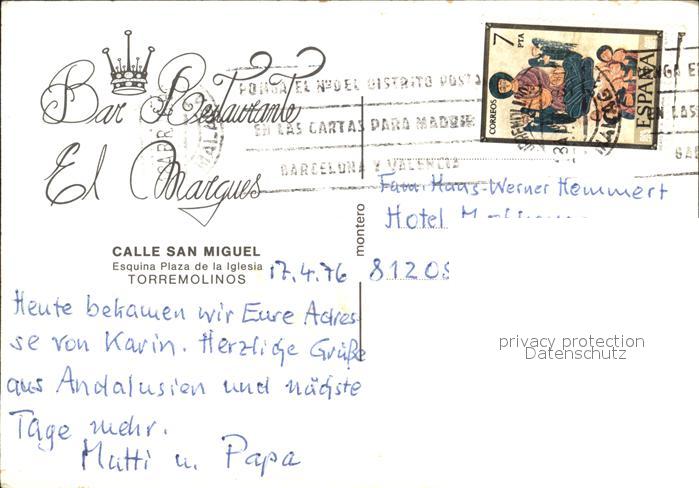 Bar Restaurante
El Marques
CALLE SAN MIGUEL
Esquina Plaza de la Iglesia
TORREMOLINOS
17.4.76
Heute bekamen wir Eure Adres-
se von Karin. Herzliche Grüße
aus Andalusien und nächste
Tage mehr.
Mutti u. Papa
montero
PONGA EL Nº DEL DISTRITO POSTAL
EN LAS CARTAS PARA MADRID
BARCELONA Y VALENCIA
7
PTA
CORREOS
ESPAÑA
Fam. Hans-Werner Hemmert
Hotel
8120
privacy protection
Datenschutz